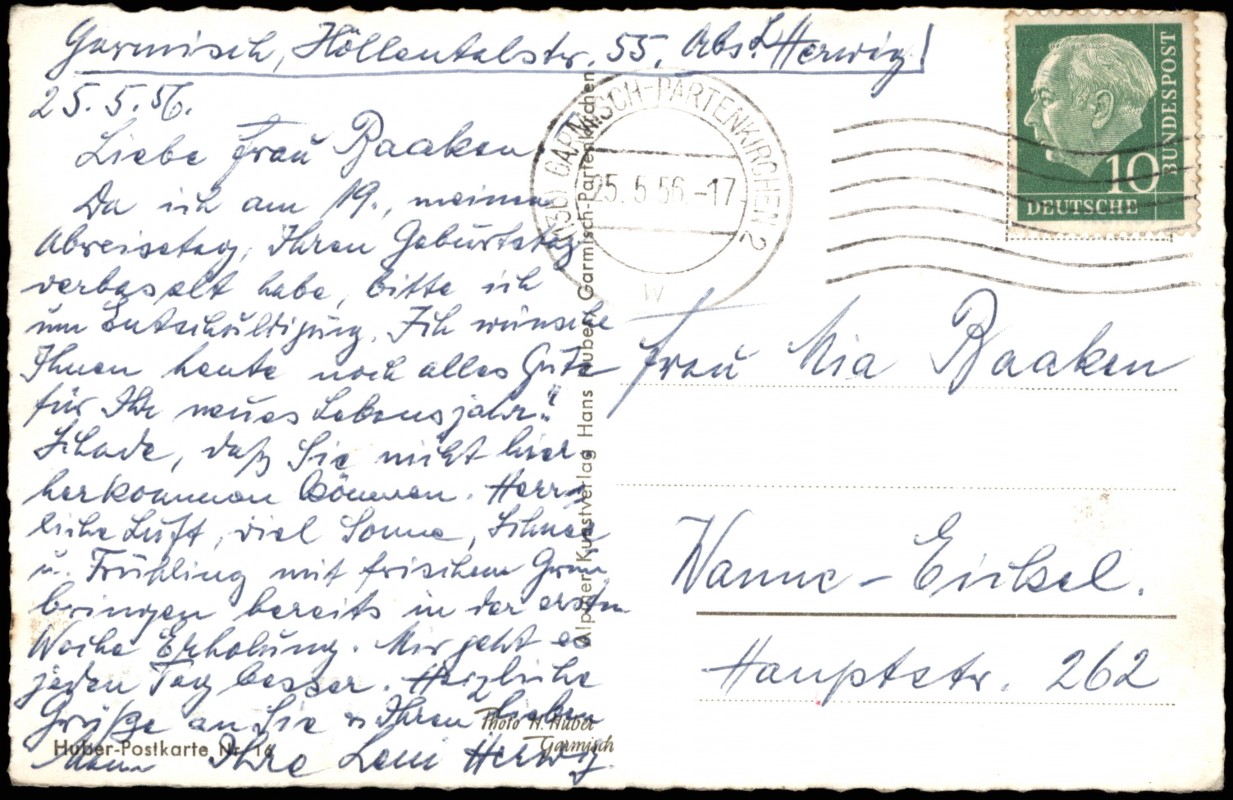 Garmisch, Höllentalstr. 55, Abs. L. Herwig!
25.5.56.
Liebe Frau Baaken
Da ich am 19., meinen
Abreisetag, Ihren Geburtstag
verbaselt habe, bitte ich
um Entschuldigung. Ich wünsche
Ihnen heute noch alles Gute
für Ihr neues Lebensjahr!
Schade, daß Sie nicht hier
herkommen können. Herr-
liche Luft, viel Sonne, Schnee
u. Frühling mit frischem Grün
bringen bereits in der ersten
Woche Erholung. Mir geht es
jeden Tag besser. Herzliche
Grüße an Sie u. Ihren lieben
Mann Ihre Leni Herwig.
Huber-Postkarte Nr. 16
Photo H. Huber
Garmisch
Alpiner Kunstverlag Hans Huber, Garmisch-Partenkirchen
GARMISCH-PARTENKIRCHEN 2
25.5.56.-17
W
10
DEUTSCHE
BUNDESPOST
Frau Mia Baaken
Wanne-Eickel.
Hauptstr. 262